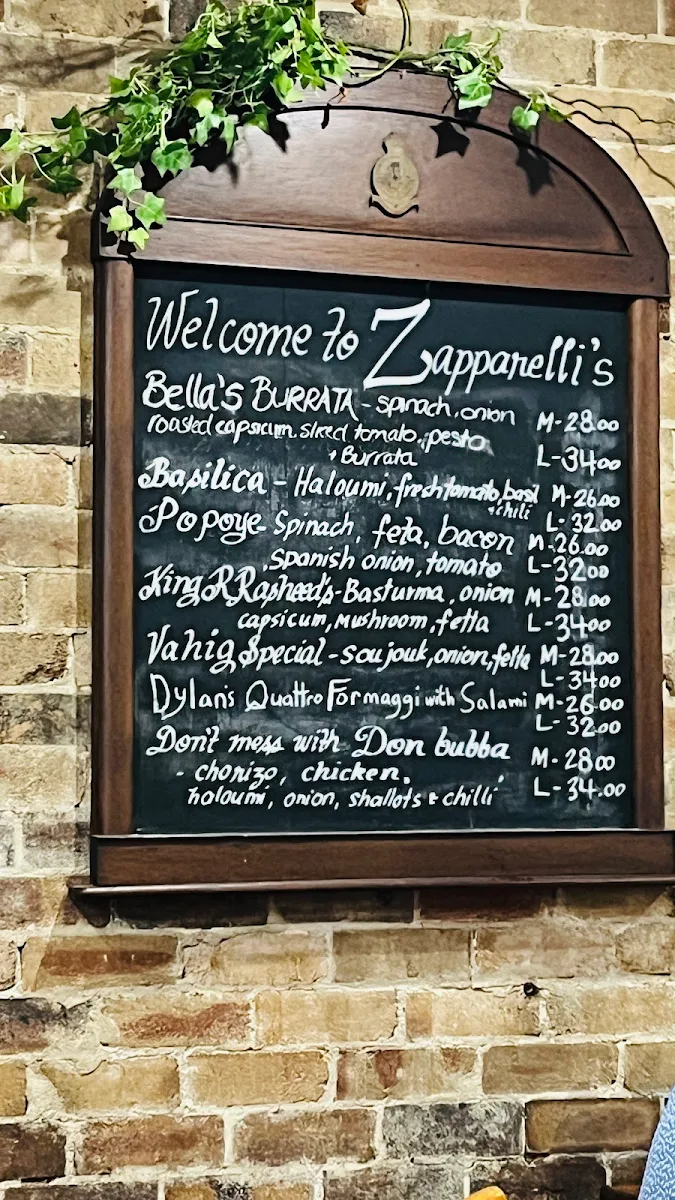 Welcome to Zapparelli's
Bella's BURRATA - spinach, onion M-28.00
roasted capsicum, sliced tomato, pesto
+ Burrata L-34.00
Basilica - Haloumi, fresh tomato, basil M-26.00
+ chili L-32.00
Popoye - Spinach, feta, bacon M-26.00
, spanish onion, tomato L-3200
King R Rasheed's - Basturma, onion M-28.00
capsicum, mushroom, fetta L-34.00
Vahig Special - soujouk, onion, fetta M-28.00
L-34.00
Dylan's Quattro Formaggi with Salami M-26.00
L-32.00
Don't mess with Don bubba M-28.00
- chorizo, chicken,
haloumi, onion, shallots & chilli L-34.00